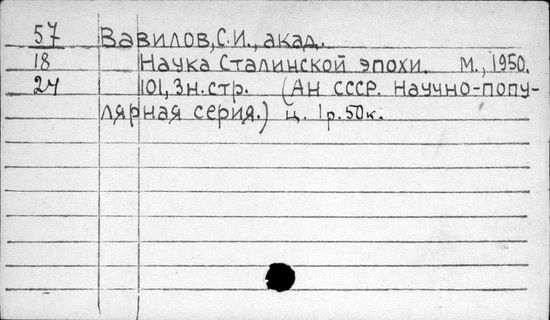 57 Вавилов, С.И., акад.
18 Наука Сталинской эпохи. М., 1950.
24 101, 3н. стр. (АН СССР. Научно-попу-
лярная серия.) ц. 1р. 50к.